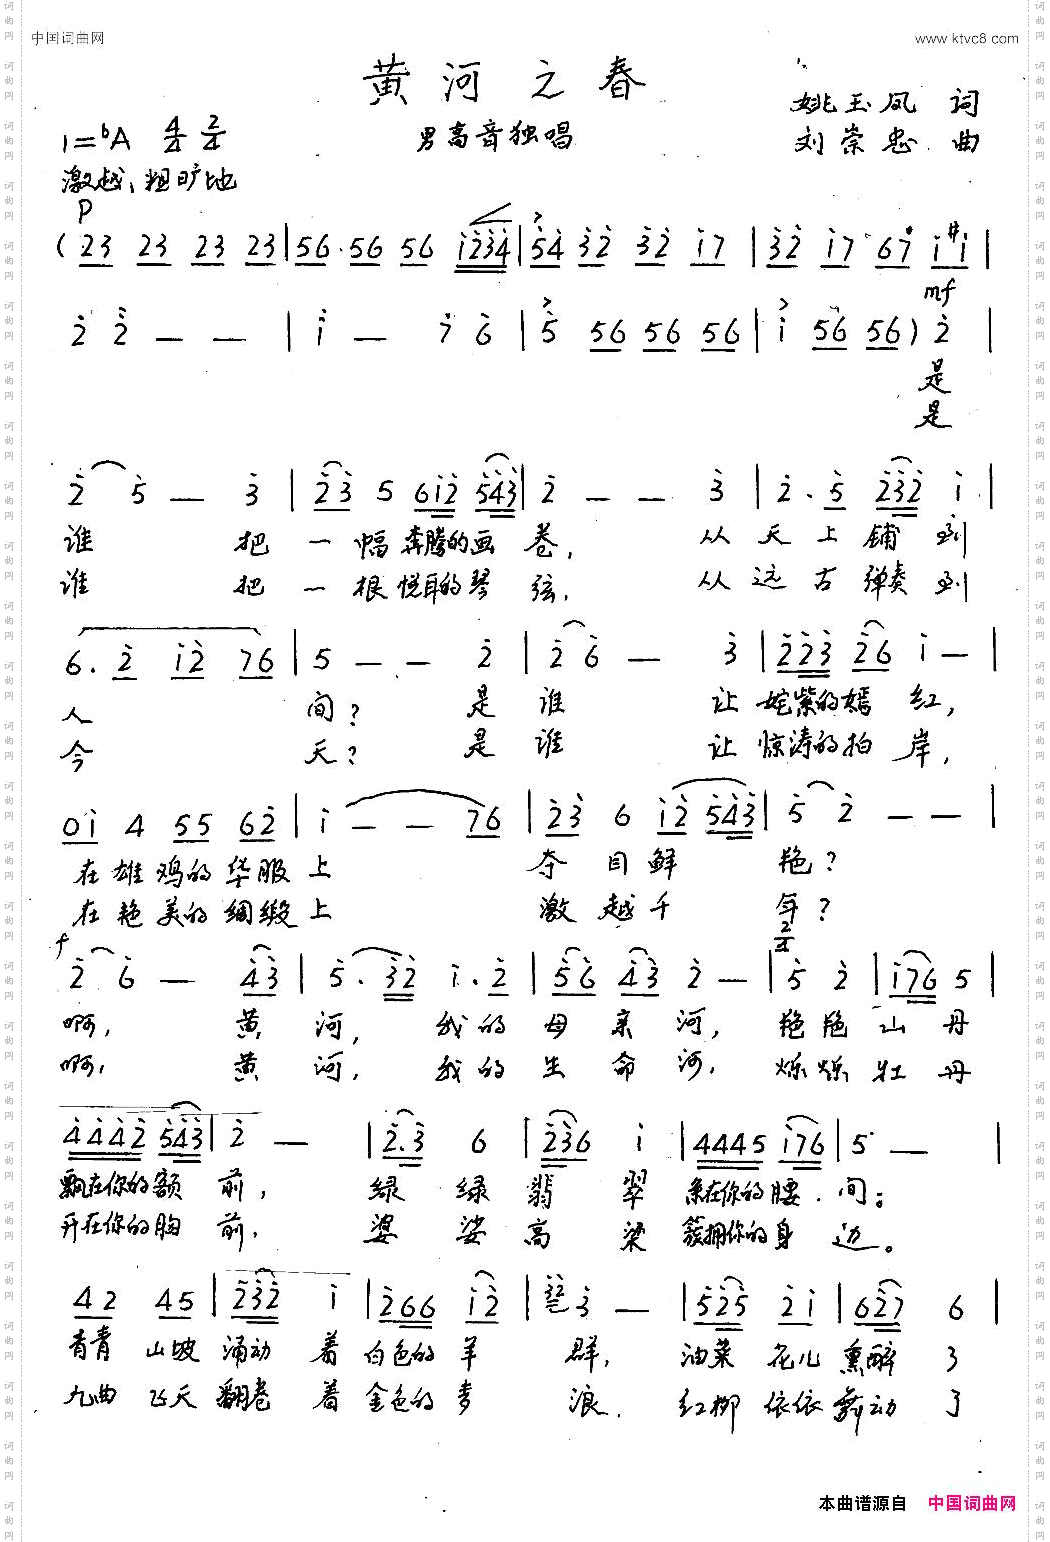 中国词曲网
www.ktvc8.com
黄河之春
男高音独唱
姚玉凤 词
刘崇忠 曲
1=♭A 4/4 2/4
激越、粗旷地
P
(23 23 23 23 | 56 56 56 1234 | 54 32 32 17 | 32 17 67 1#1 |
mf
2 2 — — | 1 — 7 6 | 5 56 56 56 | 1 56 56) 2 |
是
是
2 5 — 3 | 23 5 612 543 | 2 — — 3 | 2. 5 232 1 |
谁 把 一 幅 奔腾的画 卷, 从 天 上 铺 到
谁 把 一 根 悦耳的琴 弦, 从 远 古 弹奏 到
6. 2 12 76 | 5 — — 2 | 2 6 — 3 | 223 26 1 — |
人 间? 是 谁 让 姹紫的嫣 红,
今 天? 是 谁 让 惊涛的拍 岸,
01 4 55 62 | 1 — — 76 | 23 6 12 543 | 5 2 — — |
在 雄 鸡的 华服 上 夺 目 鲜 艳?
在 艳 美的 绸缎 上 激 越 千 年?
f
2/4
2 6 — 43 | 5. 32 1. 2 | 56 43 2 — | 5 2 | 176 5 |
啊, 黄 河, 我 的 母 亲 河, 艳艳 山 丹
啊, 黄 河, 我 的 生 命 河, 烁烁 牡 丹
4442 543 | 2 — | 2.3 6 | 236 1 | 4445 176 | 5 — |
飘在你的额 前, 绿 绿 翡 翠 系在你的腰 间;
开在你的胸 前, 婆 娑 高 粱 簇拥你的身 边。
42 45 | 232 1 | 266 12 | 323 — | 525 21 | 627 6 |
青青 山坡 涌动 着 白色的 羊 群, 油菜 花儿 熏醉 了
九曲 飞天 翻卷 着 金色的 麦 浪, 红柳 依依 舞动 了
本曲谱源自 中国词曲网